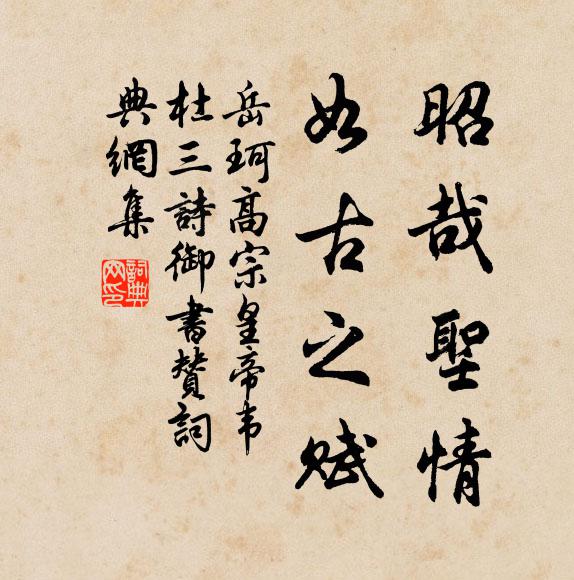 昭哉聖情
如古之賦
岳珂高宗皇帝韦
杜三詩御書贊詞
典網集
詞典網印